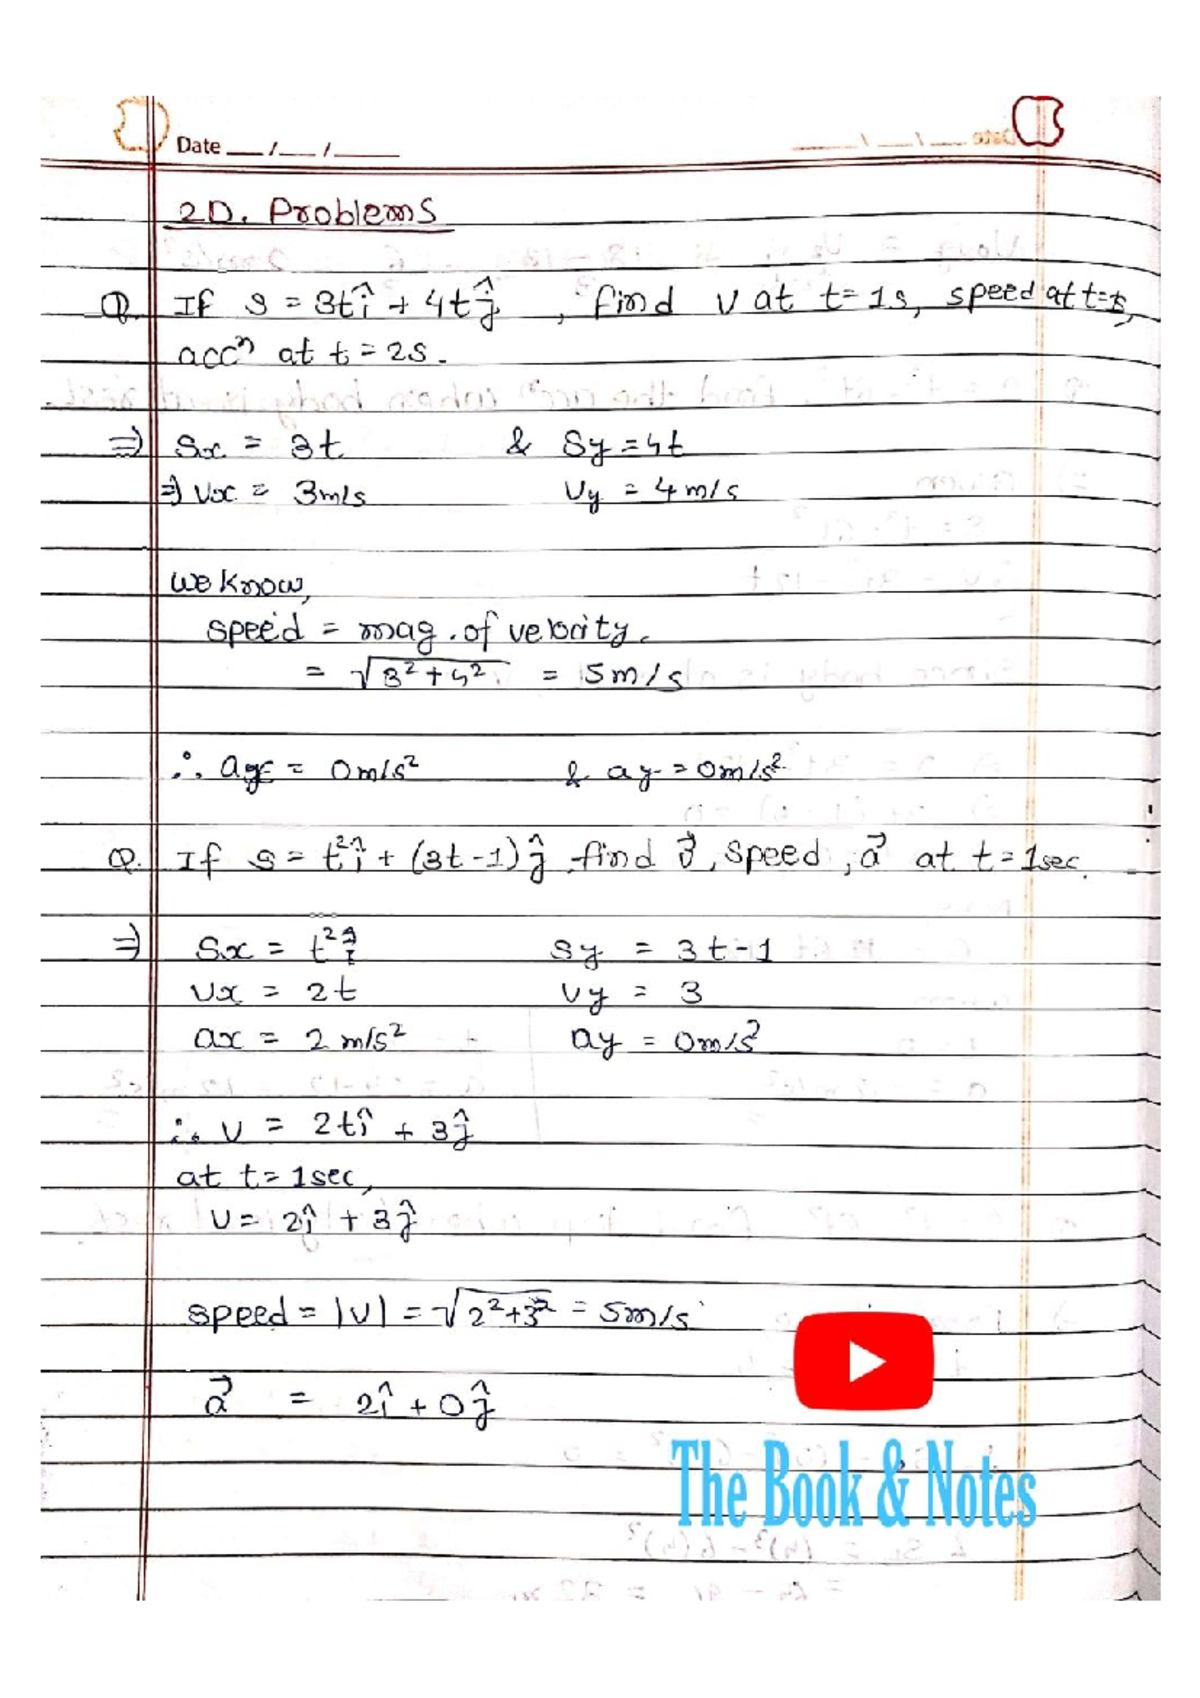 Date __/__/____
2D. Problems
Q. If s = 3tî + 4tĵ, find v at t=1s, speed at t=1s,
accⁿ at t = 2s.
⇒ Sx = 3t & Sy = 4t
⇒ Vx = 3m/s Vy = 4m/s
We know,
speed = mag. of velocity.
= √3²+4² = 5m/s
∴ ax = 0m/s² & ay = 0m/s²
Q. If s = t²î + (3t-1)ĵ find v⃗, speed, a⃗ at t=1sec.
⇒ Sx = t²î Sy = 3t-1
Vx = 2t Vy = 3
ax = 2 m/s² ay = 0m/s²
∴ V = 2tî + 3ĵ
at t=1sec,
V = 2î + 3ĵ
speed = |V| = √2²+3² = 5m/s
a⃗ = 2î + 0ĵ
The Book & Notes